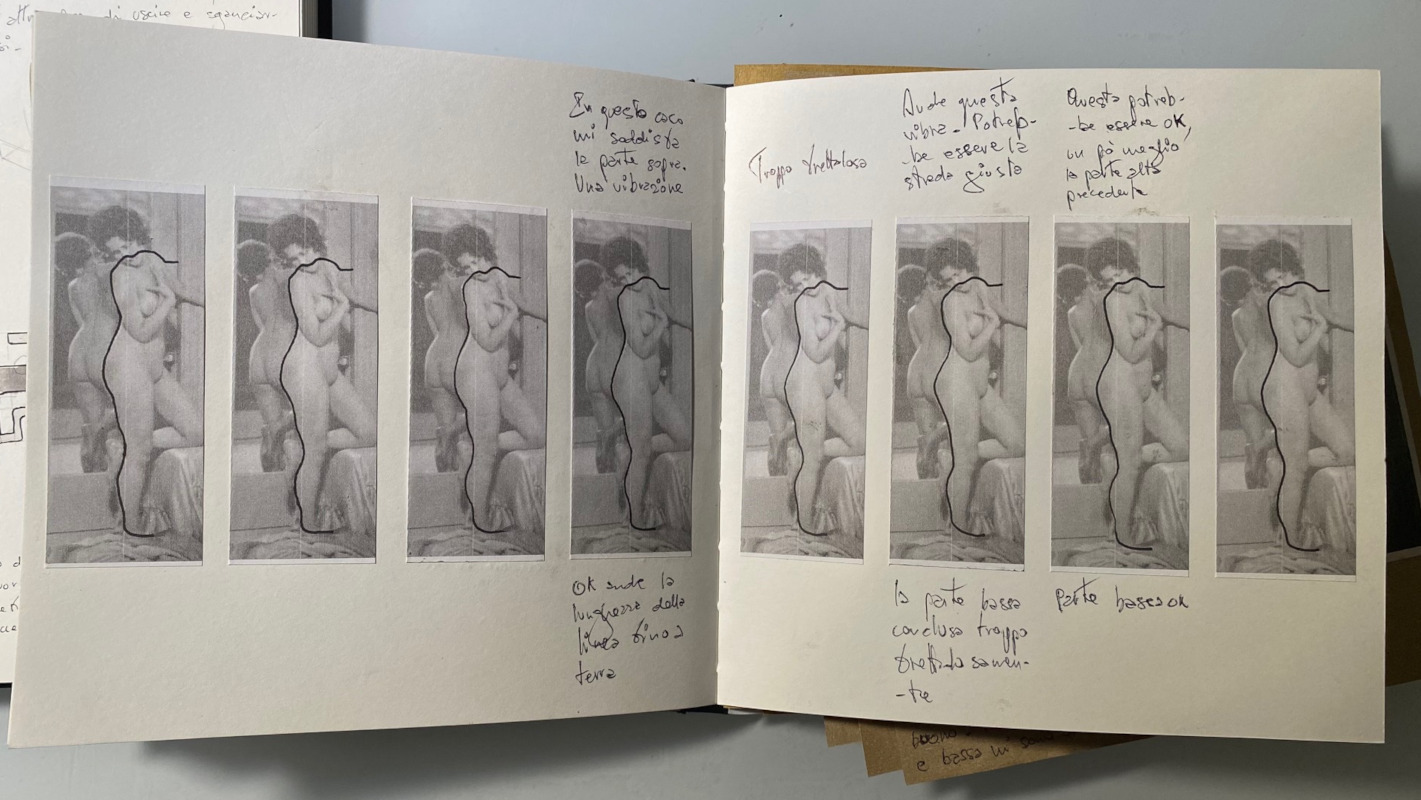 di uscire e sganciar-
In questo caso
mi soddisfa
la parte sopra.
Una vibrazione
OK anche la
lunghezza della
linea fino a
terra
Troppo frettolosa
Anche questa
vibra. Potreb-
-be essere la
strada giusta
la parte bassa
conclusa troppo
frettolosamen-
-te
Questa potreb-
-be essere OK,
un pò meglio
la parte alta
precedente
Parte bassa OK
e bassa mi